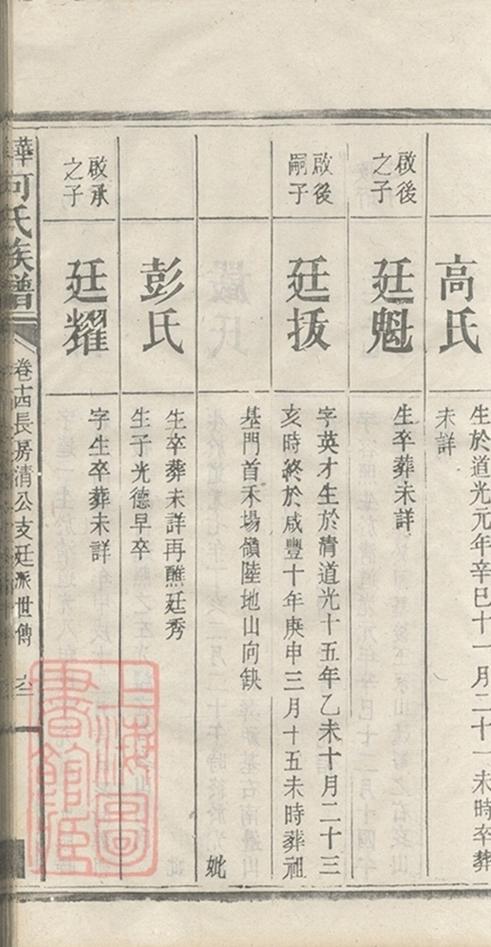 高氏
生於道光元年辛巳十一月二十一未時卒葬
未詳
啟後
之子
廷魁
生卒葬未詳
啟後
嗣子
廷拔
字英才生於清道光十五年乙未十月二十三
亥時終於咸豐十年庚申三月十五未時葬祖
基門首禾場嶺陸地山向缺
妣
彭氏
生卒葬未詳再醮廷秀
生子光德早卒
啟承
之子
廷耀
字生卒葬未詳
華
何氏族譜
卷十四長房清公支廷派世傳
上海圖
書館藏